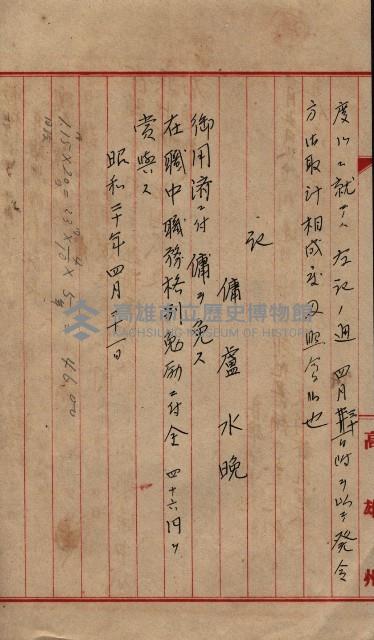 度シニ就テハ左記ノ通四月三十日附ヲ以テ発令
方御取計相成度及照会候也
記
傭 盧水晩
御用済ニ付傭ヲ免ス
在職中職務格別勉励ニ付金四十六円ヲ
賞与ス
昭和二十年四月二十一日
1.15×20=23
46.00
高雄州
高雄市立歷史博物館
KAOHSIUNG MUSEUM OF HISTORY